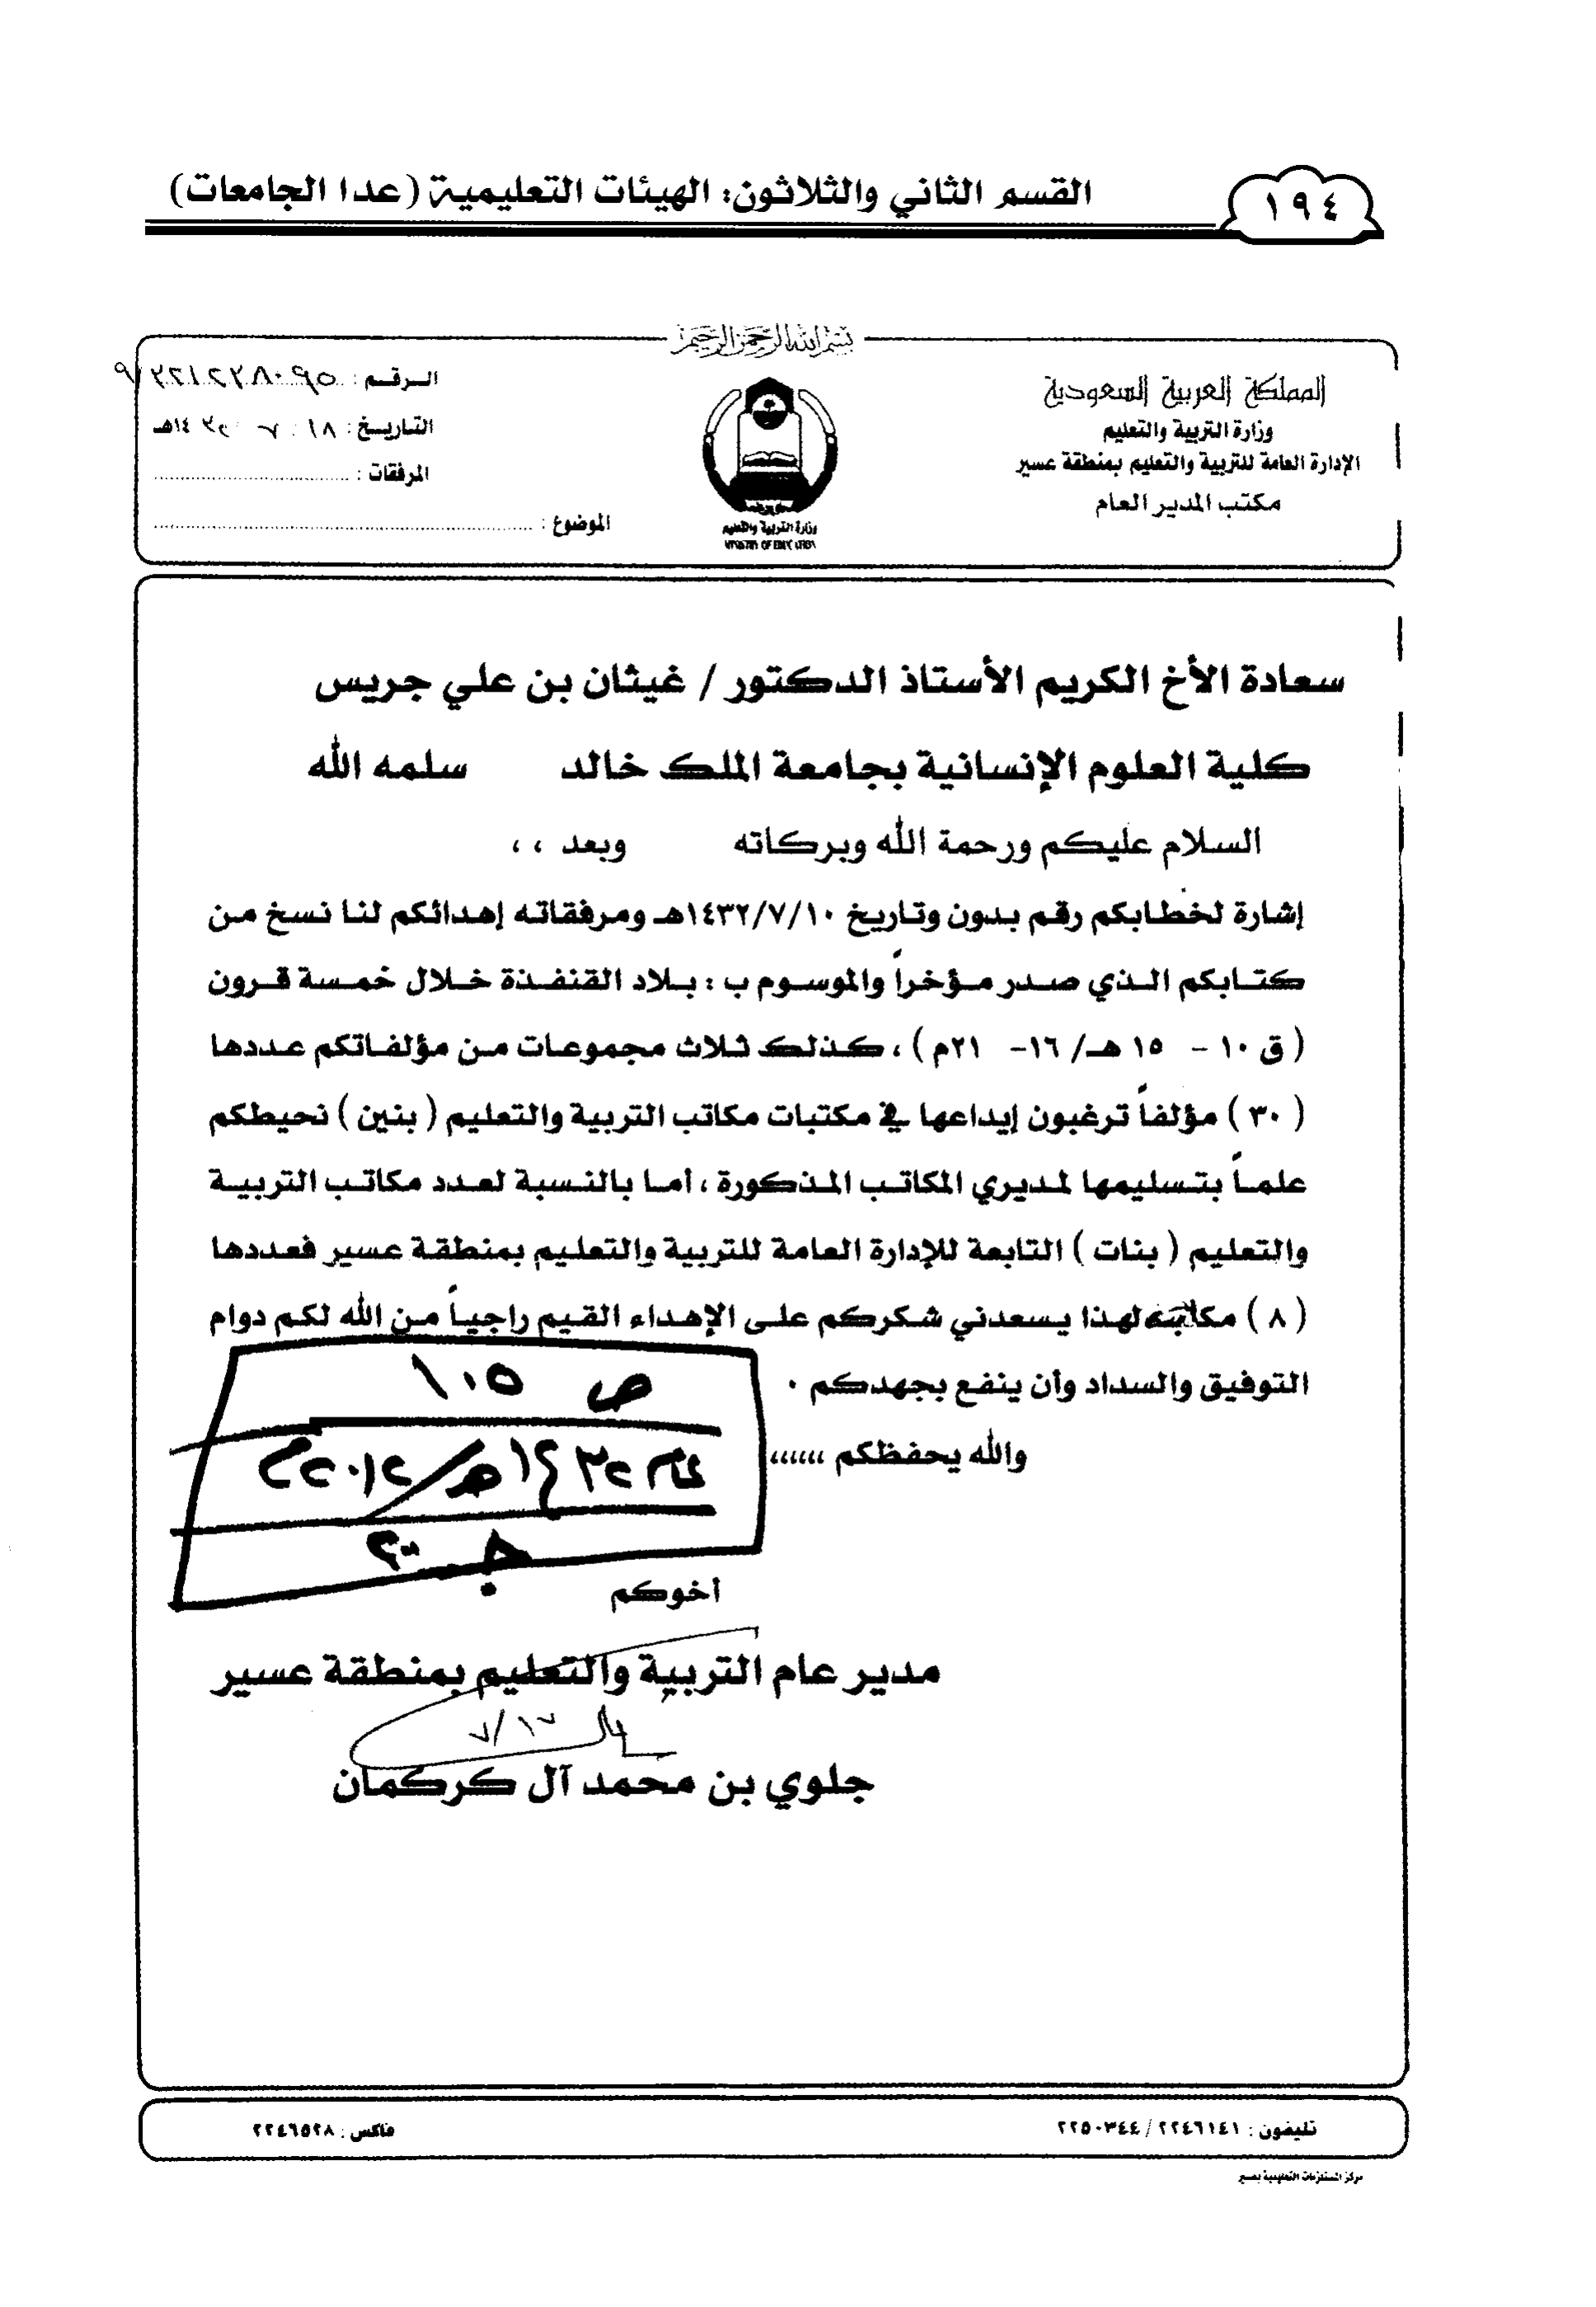 ١٩٤
القسم الثاني والثلاثون: الهيئات التعليمية (عدا الجامعات)
بسم الله الرحمن الرحيم
المملكة العربية السعودية
وزارة التربية والتعليم
الإدارة العامة للتربية والتعليم بمنطقة عسير
مكتب المدير العام
وزارة التربية والتعليم
MINISTRY OF EDUCATION
الرقم :
التاريخ : ١٨ / ٧ / ١٤٣٢هـ
المرفقات :
الموضوع :
سعادة الأخ الكريم الأستاذ الدكتور / غيثان بن علي جريس
كلية العلوم الإنسانية بجامعة الملك خالد سلمه الله
السلام عليكم ورحمة الله وبركاته وبعد ،،
إشارة لخطابكم رقم بدون وتاريخ ١٤٣٢/٧/١٠هـ ومرفقاته إهدائكم لنا نسخ من
كتابكم الذي صدر مؤخراً والموسوم ب : بلاد القنفذة خلال خمسة قرون
( ق ١٠ - ١٥ هـ/ ١٦- ٢١م ) ، كذلك ثلاث مجموعات من مؤلفاتكم عددها
( ٣٠ ) مؤلفاً ترغبون إيداعها في مكتبات مكاتب التربية والتعليم ( بنين ) نحيطكم
علماً بتسليمها لمديري المكاتب المذكورة ، أما بالنسبة لعدد مكاتب التربية
والتعليم ( بنات ) التابعة للإدارة العامة للتربية والتعليم بمنطقة عسير فعددها
( ٨ ) مكاتب لهذا يسعدني شكركم على الإهداء القيم راجياً من الله لكم دوام
التوفيق والسداد وأن ينفع بجهدكم .
ص ١٠٥
والله يحفظكم ،،،،،،
عام ١٤٣٢هـ/٢٠١٢م
أخوكم
مدير عام التربية والتعليم بمنطقة عسير
٧/١٧
جلوي بن محمد آل كركمان
تليفون : ٢٢٤٦١٤١ / ٢٢٥٠٣٤٤
فاكس : ٢٢٤٦٥٢٨
مركز المستلزمات التعليمية بعسير